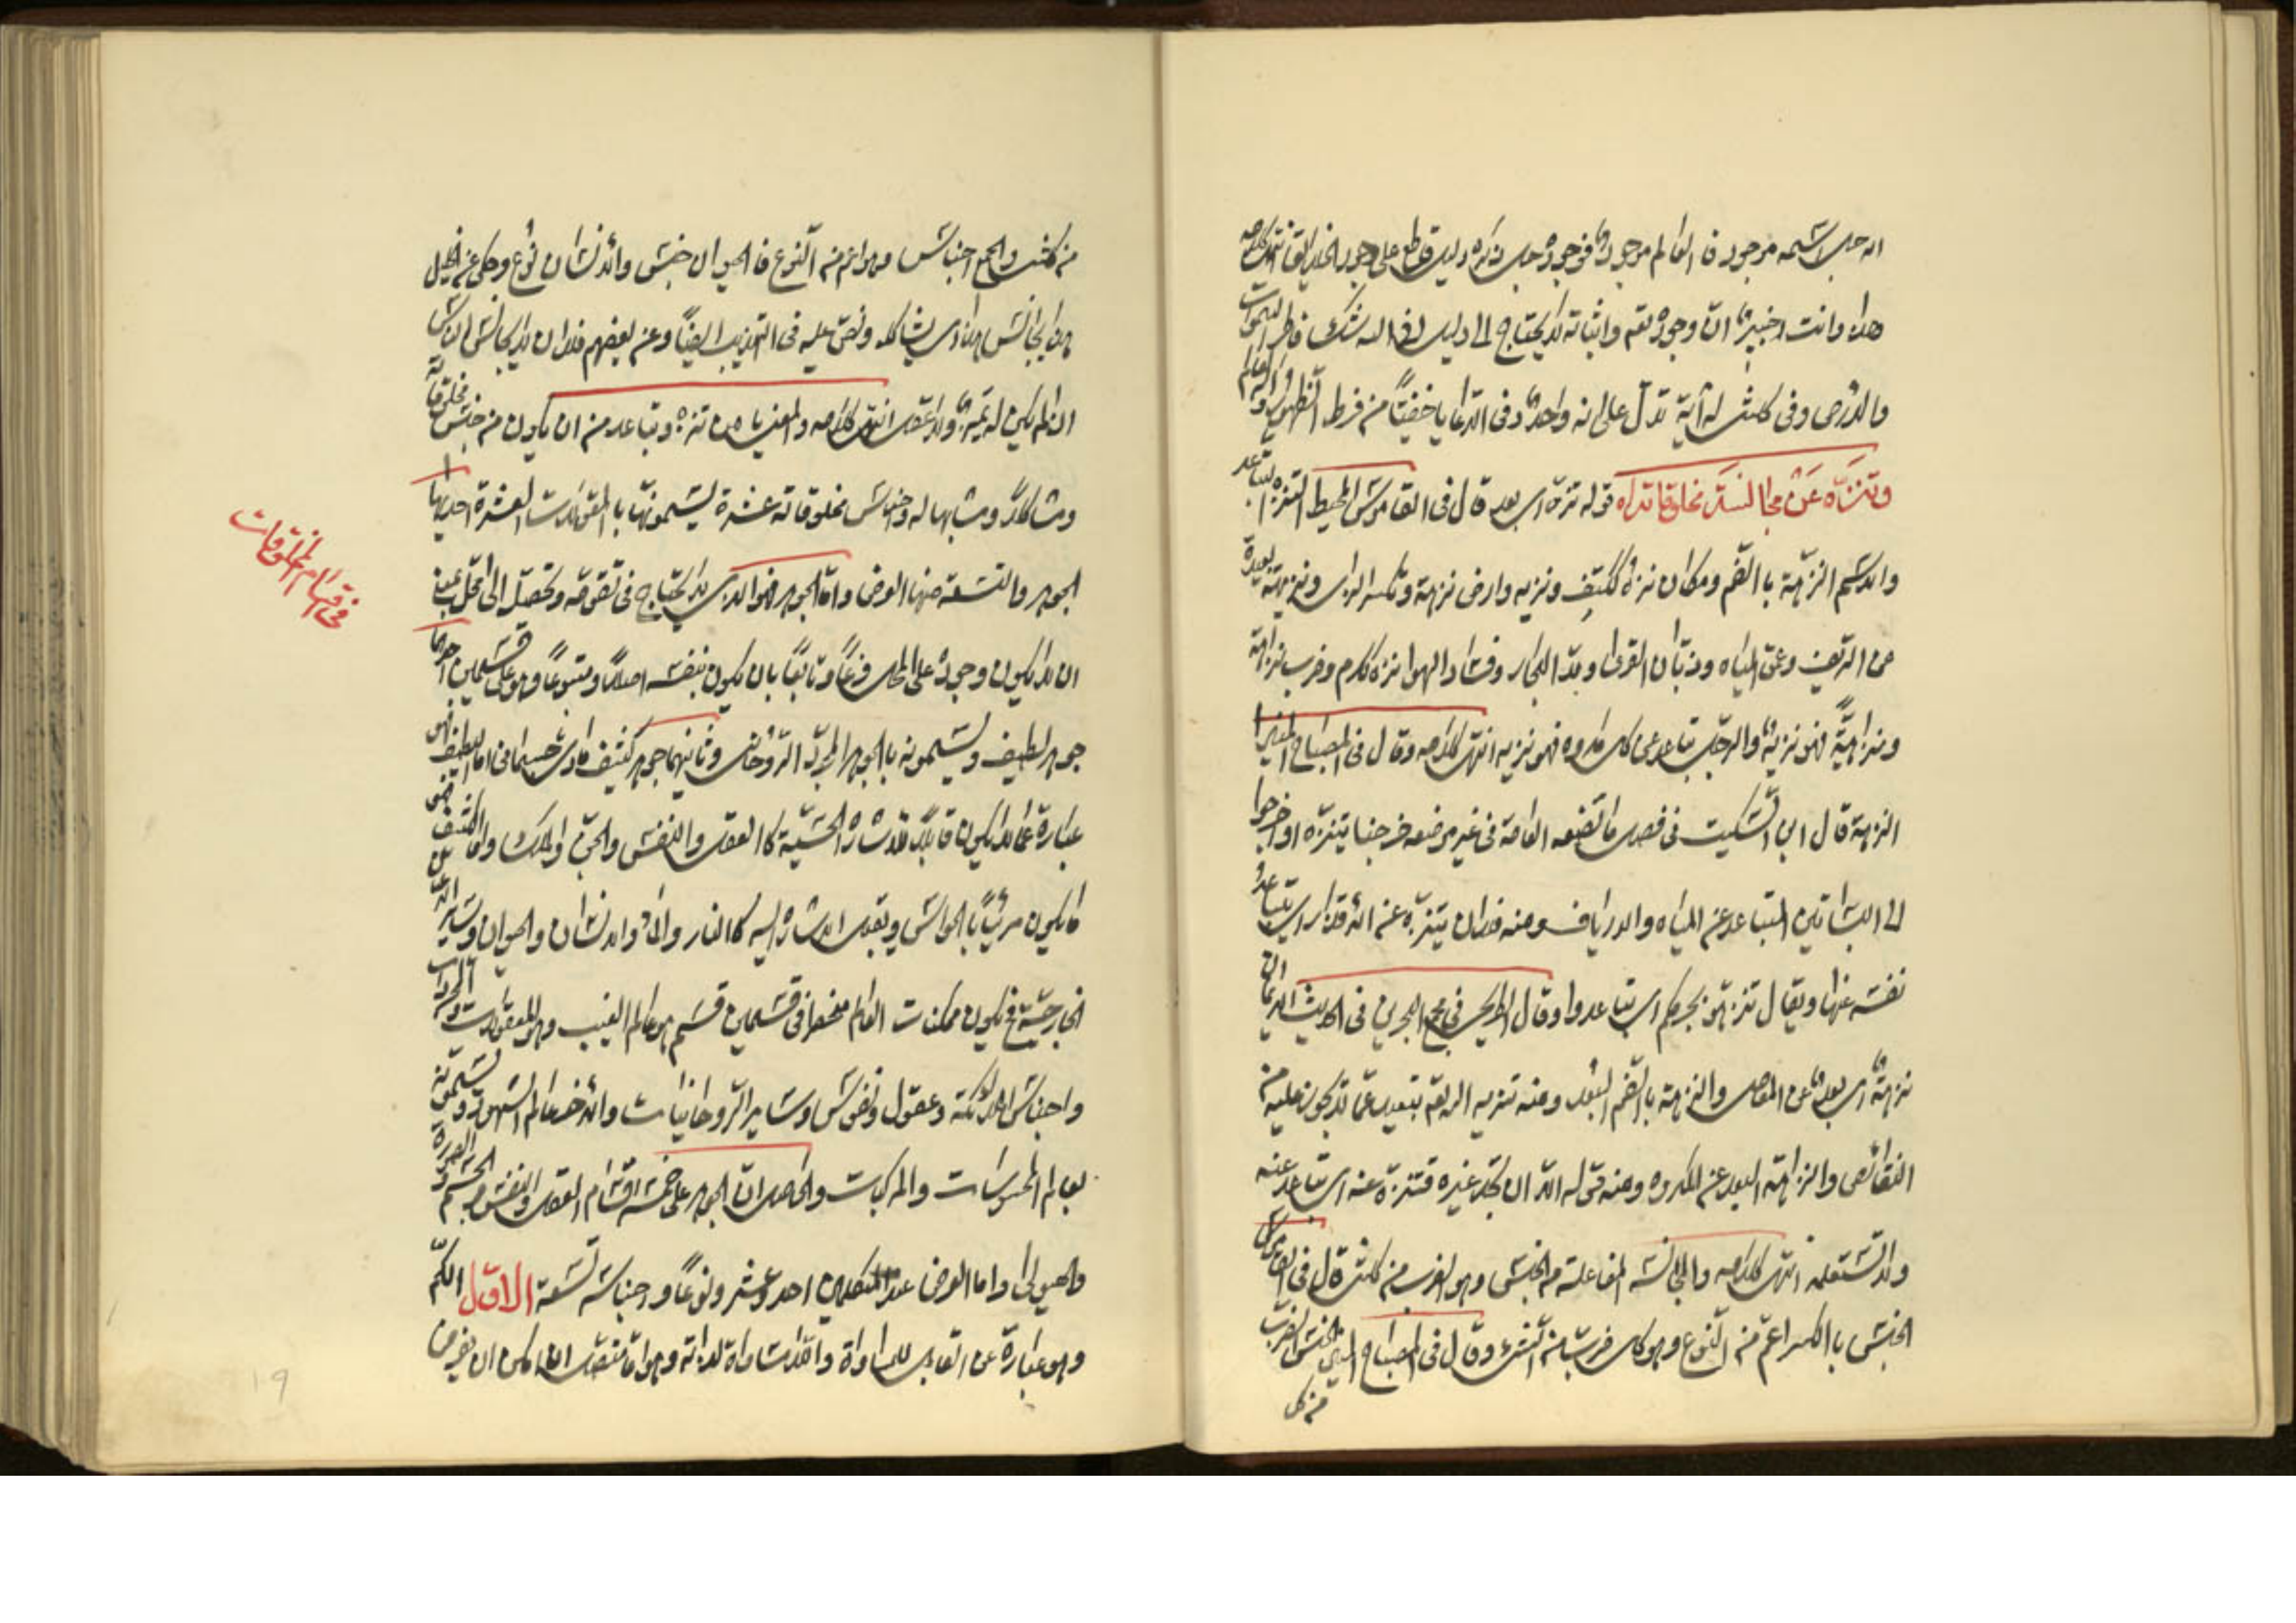 اله جل اسمه موجود فالعالم موجود فوجوده جل ذكره دليل قاطع على وجود الخالق انتهى كلامه
هذا وانت خبير ان وجوده تعه واثباته لا يحتاج الى دليل افى الله شك فاطر السموات
والارض وفى كلشئ له آية تدل على انه واحد وفى الدعا يا خفيّا من فرط الظهور
وتنزّه عن مجانسة مخلوقاته قوله تنزّه اى بعد قال فى القاموس المحيط التنزه التباعد
والاسم النزهة بالضم ومكان نزه ككتف ونزيه وارض نزهة وتكسر الزاى ونزيهة بعيدة
عن الريف وغمق المياه وذبّان القرى وومد البحار وفساد الهوا نزه ككرم وضرب نزاهة
ونزاهيةً فهو نزيه والرجل تباعد عن كل مكروه فهو نزيه انتهى كلامه وقال فى المصباح المنير
النزهة قال ابن السكيت فى فصل ما تضعه العامة فى غير موضعه خرجنا نتنزّه اذا خرجوا
الى البساتين انما التباعد عن المياه والارياف ومنه فلان يتنزّه عن الاقذار اى يتباعد
نفسه عنها ويقال تنزهوا بحرمكم اى تباعدوا وقال الطريحى فى مجمع البحرين فى الحديث الايمان
نزهة اى بعيد عن المعاصى والنزهة بالضم البعد ومنه تنزيه الله تعه تبعيده عمّا لا يجوز عليه من
النقائص والنزاهة البعد عن المكروه ومنه قوله الا ان تجد غيره فتنزّه عنه اى تباعد عنه
ولا تستعمله انتهى كلامه والمجانسة المفاعلة من الجنس وهو الضرب من كلشئ قال فى القاموس
الجنس بالكسر اعمّ من النوع وهو كل ضرب من الشئ وقال فى المصباح المنير الجنس الضرب
من كل
من كلشئ والجمع اجناس وهو اعم من النوع فالحيوان جنس والانسان نوع وحكى عن الخليل
هذا يجانس هذا اى يشاكله ونص عليه فى التهذيب ايضًا وعن بعضهم فلان لا يجانس الناس
اذا لم يكن له تميز ولا عقل انتهى كلامه والمعنى يا من تنزه وتباعد من ان يكون من جنس مخلوقاته
ومشاكلا ومشابها له واجناس مخلوقاته عشرة يسمونها بالمقولات العشرة احديها
الجوهر والتسعة منها العرض وامّا الجوهر فهو الذى لا يحتاج فى تقومه وتحصله الى محل يعنى
ان لا يكون وجوده على المحل فرعًا وتابعًا بان يكون بنفسه اصلًا ومتبوعًا وهو على قسمين احدهما
جوهر لطيف ويسمونه بالجوهر المجرّد الروحانى وثانيهما جوهر كثيف مادى جسمانى اما اللطيف فهو
عبارة عما لا يكون قابلا للاشارة الحسّية كالعقل والنفس والجن والملك واما الكثيف فهو
ما يكون مرئيًّا بالحواس ويقبل الاشارة اليه كالنار والماء والانسان والحيوان وساير الاعيان
الخارجية فح يكون ممكنات العالم منحصرا فى قسمين قسم هو عالم الغيب وهو المعقولات
واجناس الملائكة وعقول ونفوس وساير الروحانيات والاخر عالم الشهود ويسمونه
بعالم المحسوسات والمركبات والحاصل ان الجوهر على خمسة اقسام العقل والنفس والجسم والصورة
والهيولى واما العرض عند المتكلمين احد وعشرون نوعًا واجناسه تسعة الاول الكم
وهو عبارة عن القابل للمساواة واللامساواة لذاته وهو امّا منفصل ان امكن ان يفرض
فى اقسام المخلوقات
19